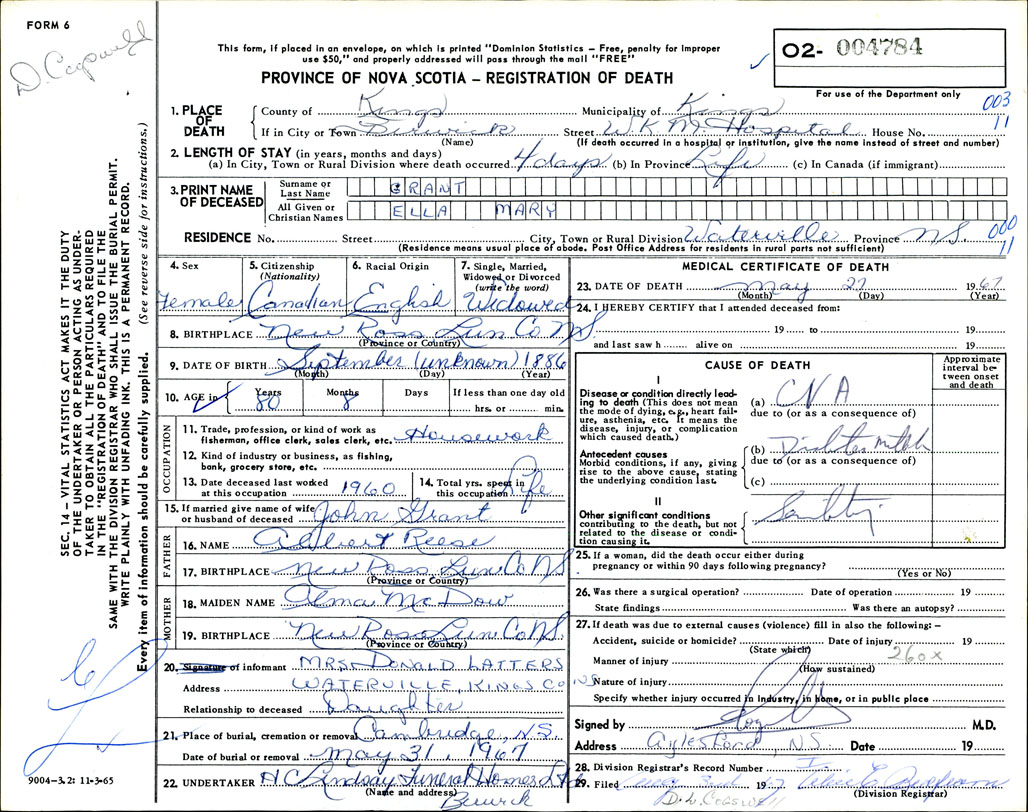 FORM 6
D. Cogswell
This form, if placed in an envelope, on which is printed "Dominion Statistics – Free, penalty for improper
use $50," and properly addressed will pass through the mail "FREE"
PROVINCE OF NOVA SCOTIA – REGISTRATION OF DEATH
02- 004784
For use of the Department only
003
11
1. PLACE OF DEATH
County of Kings Municipality of Kings
If in City or Town Berwick Street W.K.M. Hospital House No.
(Name) (If death occurred in a hospital or institution, give the name instead of street and number)
2. LENGTH OF STAY (in years, months and days)
(a) In City, Town or Rural Division where death occurred 4 days (b) In Province Life (c) In Canada (if immigrant)
3. PRINT NAME OF DECEASED
Surname or Last Name GRANT
All Given or Christian Names ELLA MARY
000
11
RESIDENCE No. Street City, Town or Rural Division Waterville Province N.S.
(Residence means usual place of abode. Post Office Address for residents in rural parts not sufficient)
4. Sex Female
5. Citizenship (Nationality) Canadian
6. Racial Origin English
7. Single, Married, Widowed or Divorced (write the word) Widowed
8. BIRTHPLACE New Ross Lun. Co. N.S.
(Province or Country)
9. DATE OF BIRTH September (unknown) 1886
(Month) (Day) (Year)
10. AGE in Years 80 Months 8 Days If less than one day old hrs. or min.
OCCUPATION
11. Trade, profession, or kind of work as fisherman, office clerk, sales clerk, etc. Housework
12. Kind of industry or business, as fishing, bank, grocery store, etc.
13. Date deceased last worked at this occupation 1960
14. Total yrs. spent in this occupation Life
15. If married give name of wife or husband of deceased John Grant
FATHER
16. NAME Albert Reese
17. BIRTHPLACE New Ross Lun. Co. N.S.
(Province or Country)
MOTHER
18. MAIDEN NAME Alma McDow
19. BIRTHPLACE New Ross Lun. Co. N.S.
(Province or Country)
20. Signature of informant MRS. DONALD LATTERS
Address WATERVILLE, KINGS CO NS
Relationship to deceased Daughter
21. Place of burial, cremation or removal Cambridge, N.S.
Date of burial or removal May 31, 1967
22. UNDERTAKER H C Lindsay Funeral Homes Ltd
(Name and address) Berwick
MEDICAL CERTIFICATE OF DEATH
23. DATE OF DEATH May 27 1967
(Month) (Day) (Year)
24. I HEREBY CERTIFY that I attended deceased from:
19 to 19
and last saw h alive on 19
CAUSE OF DEATH
Approximate interval between onset and death
I
Disease or condition directly leading to death (This does not mean the mode of dying, e.g., heart failure, asthenia, etc. It means the disease, injury, or complication which caused death.)
(a) CVA
due to (or as a consequence of)
Antecedent causes
Morbid conditions, if any, giving rise to the above cause, stating the underlying condition last.
(b) Diabetes
due to (or as a consequence of)
(c)
II
Other significant conditions contributing to the death, but not related to the disease or condition causing it.
25. If a woman, did the death occur either during
pregnancy or within 90 days following pregnancy?
(Yes or No)
26. Was there a surgical operation? Date of operation 19
State findings Was there an autopsy?
27. If death was due to external causes (violence) fill in also the following: –
Accident, suicide or homicide? Date of injury 19
(State which) 260X
Manner of injury
(How sustained)
Nature of injury
Specify whether injury occurred in Industry, in home, or in public place
Signed by M.D.
Address Aylesford, N.S. Date 19
28. Division Registrar's Record Number
29. Filed 19
(Division Registrar)
D. L. Cogswell
SEC. 14 – VITAL STATISTICS ACT MAKES IT THE DUTY
OF THE UNDERTAKER OR PERSON ACTING AS UNDER-
TAKER TO OBTAIN ALL THE PARTICULARS REQUIRED
IN THE "REGISTRATION OF DEATH" AND TO FILE THE
SAME WITH THE DIVISION REGISTRAR WHO SHALL ISSUE BURIAL PERMIT.
WRITE PLAINLY WITH UNFADING INK. THIS IS A PERMANENT RECORD.
Every item of information should be carefully supplied. (See reverse side for instructions.)
9004-3.2: 11-3-65